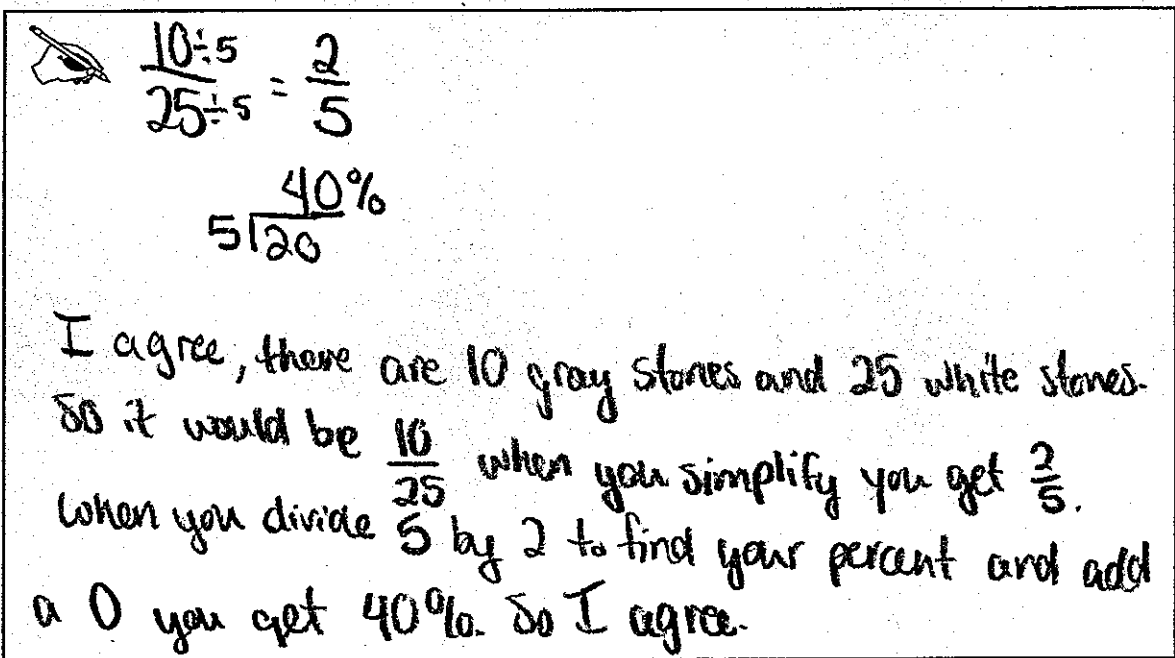 10÷5 / 25÷5 = 2/5
40%
5⟌20
I agree, there are 10 gray stones and 25 white stones.
So it would be 10/25 when you simplify you get 2/5.
When you divide 5 by 2 to find your percent and add
a 0 you get 40%. So I agree.